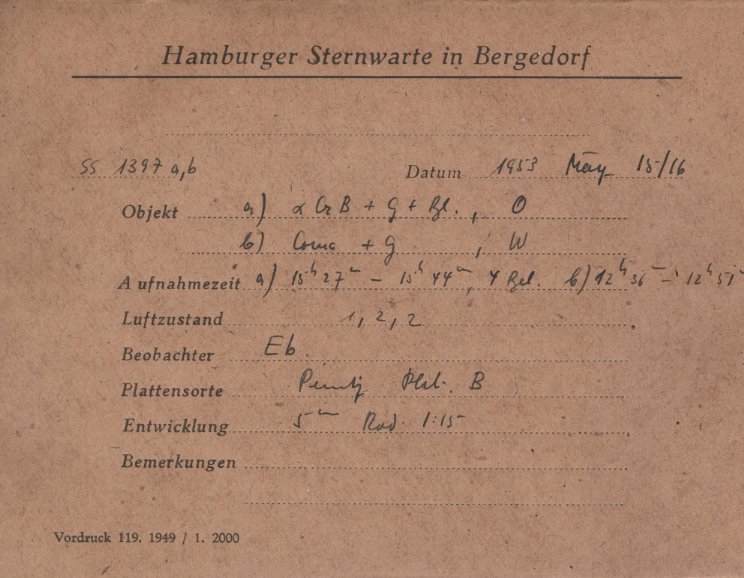 Hamburger Sternwarte in Bergedorf
SS 1397 a,b Datum 1953 May 15/16
Objekt a) α CrB + G + Bl., O
b) Coma + G , W
Aufnahmezeit a) 15h 27m - 15h 44m, 4 Bel. b) 12h 36m - 12h 51m
Luftzustand 1, 2, 2
Beobachter Eb.
Plattensorte Perutz Plat. B
Entwicklung 5m Rod 1:15
Bemerkungen
Vordruck 119. 1949 / 1. 2000